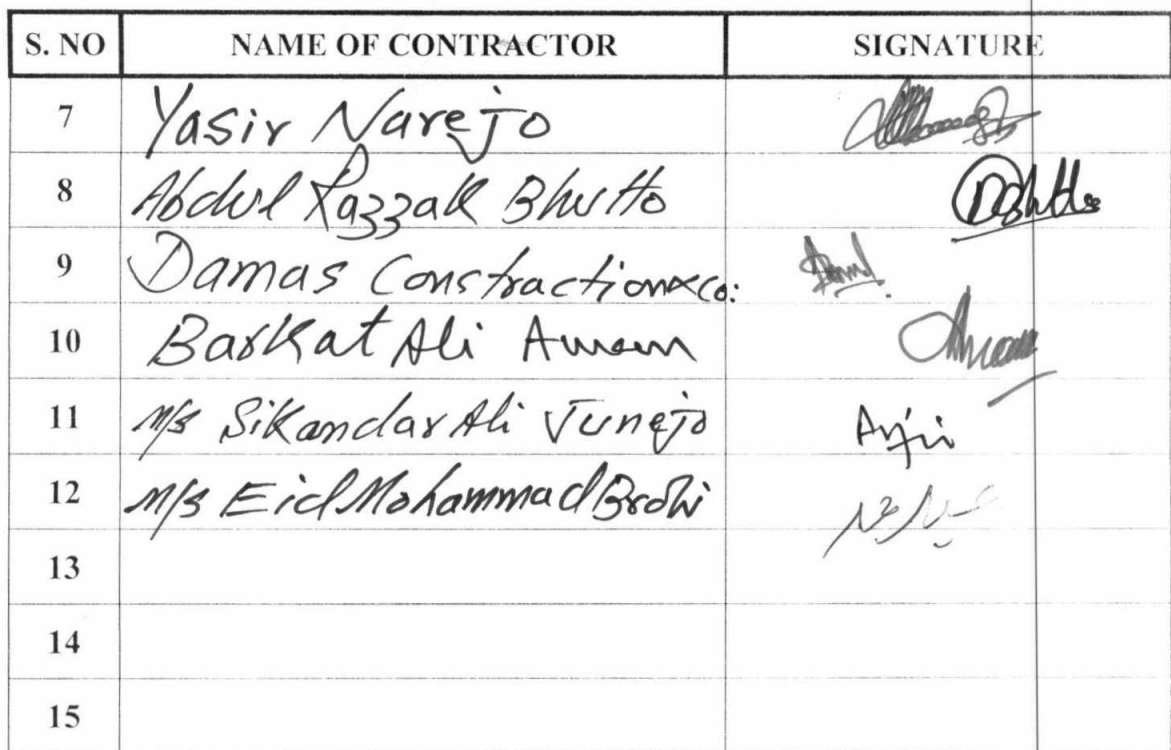 S. NO NAME OF CONTRACTOR SIGNATURE
7 Yasir Narejo
8 Abdul Razzak Bhutto
9 Damas Constraction & Co:
10 Barkat Ali
11 M/s Sikandar Ali Junejo
12 M/s Eid Mohammad Brohi
13
14
15